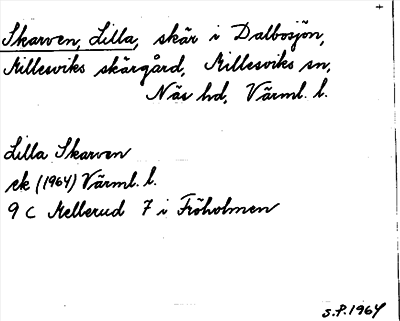 +
Skarven, Lilla, skär i Dalbosjön,
Millesviks skärgård, Millesviks sn,
Näs hd, Värml. l.
Lilla Skarven
ek (1964) Värml. l.
9 C Mellerud 7 i Fröholmen
S.P. 1964